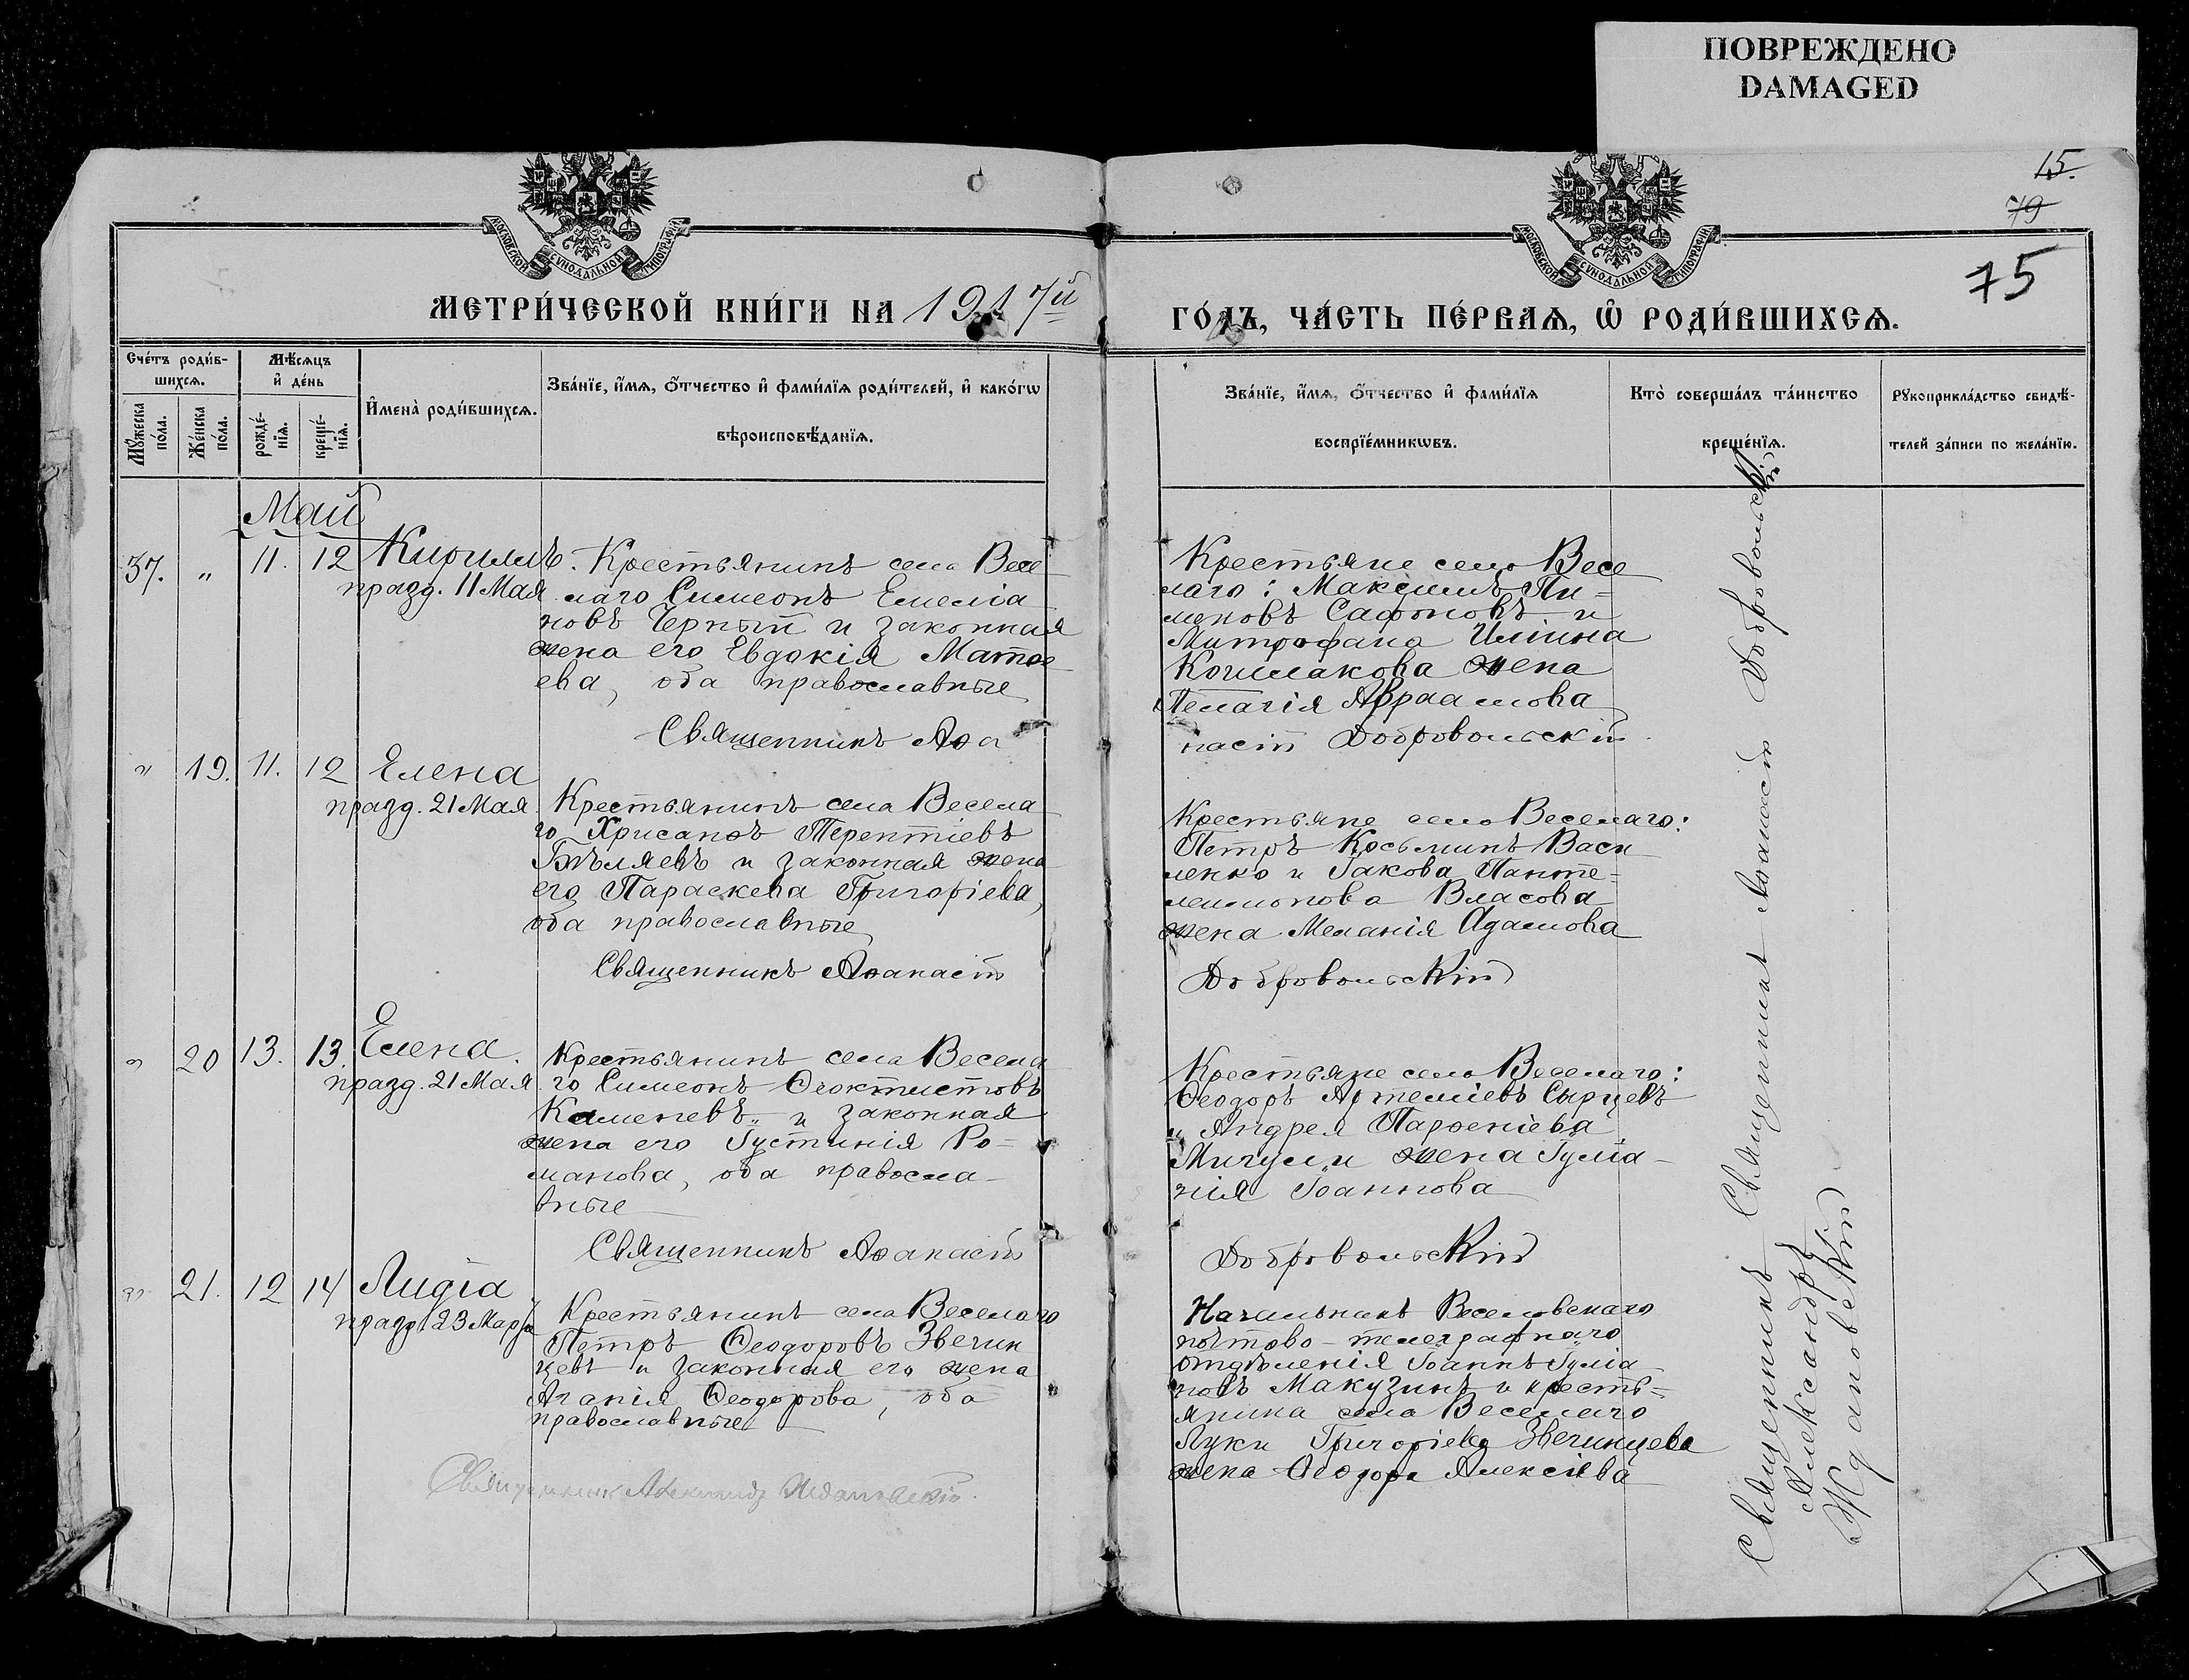 ПОВРЕЖДЕНО
DAMAGED
15.
79
75
МОСКОВСКОЙ СѴНОДАЛЬНОЙ ТИПОГРАФІИ
МОСКОВСКОЙ СѴНОДАЛЬНОЙ ТИПОГРАФІИ
МЕТРИ́ЧЕСКОЙ КНИ́ГИ НА 1917й
ГО́ДЪ, ЧА́СТЬ ПЕ́РВАѦ, Ѡ҆ РОДИ́ВШИХСѦ.
Сче́тъ роди́в-
шихсѧ.
Мѣ́сѧцъ
и҆ де́нь
Мꙋ́жеска по́ла.
Же́нска по́ла.
рожде́-нїѧ.
креще́-нїѧ.
И҆мена̀ роди́вшихсѧ.
Зва́нїе, и҆́мѧ, ѻ҆́тчество и҆ фами́лїѧ роди́телей, и҆ како́гѡ
вѣроисповѣ́данїѧ.
Зва́нїе, и҆́мѧ, ѻ҆́тчество и҆ фами́лїѧ
воспрїе́мникѡвъ.
Кто̀ соверша́лъ та́инство
креще́нїѧ.
Рꙋкоприкла́дство свидѣ́-
телей за́писи по жела́нїю.
Май
37. " 11. 12 Кириллъ.
празд. 11 Мая
Крестьянинъ села Весе
лаго Симеонъ Емеліа
новъ Черный и законная
жена его Евдокія Матѳе
ева, оба православные
Священникъ Аѳа
Крестьяне села Весе
лаго: Максимъ Пи-
меновъ Сафоновъ и
Митрофана Иліина
Колмакова жена
Пелагія Авраамова
насій Добровольскій
" 19. 11. 12 Елена
празд. 21 Мая
Крестьянинъ села Весела
го Хрисанѳъ Терентіевъ
Бѣляевъ и законная жена
его Параскева Григоріева,
оба православные
Священникъ Аѳанасій
Крестьяне села Веселаго:
Петръ Косьминъ Васи
ленко и Іакова Панте-
леимонова Власова
жена Меланія Адамова
Добровольскій
" 20 13. 13. Елена.
празд. 21 Мая
Крестьянинъ села Весела
го Симеонъ Ѳеоктистовъ
Каменевъ и законная
жена его Іустинія Ро-
манова, оба правосла-
вные
Священникъ Аѳанасій
Крестьяне села Веселаго:
Ѳеодоръ Артеміевъ Сырцевъ
и Андрея Парѳеніева
жена Іуліа-
нія Іоаннова
Добровольскій
" 21. 12 14 Лидіа
празд. 23 Марта
Крестьянинъ села Веселаго
Петръ Ѳеодоровъ Звегин
цевъ и законная его жена
Агапія Ѳеодорова, оба
православные
Священникъ Александръ Ждановскій.
Начальникъ Веселовскаго
почтово-телеграфнаго
отдѣленія Іоаннъ Іуліа
новъ Макузинъ и кресть-
янина села Веселаго
Луки Григоріева Звегинцева
жена Ѳеодора Алексіева
Священникъ Аѳанасій Добровольскій
Священникъ
Александръ
Ждановскій